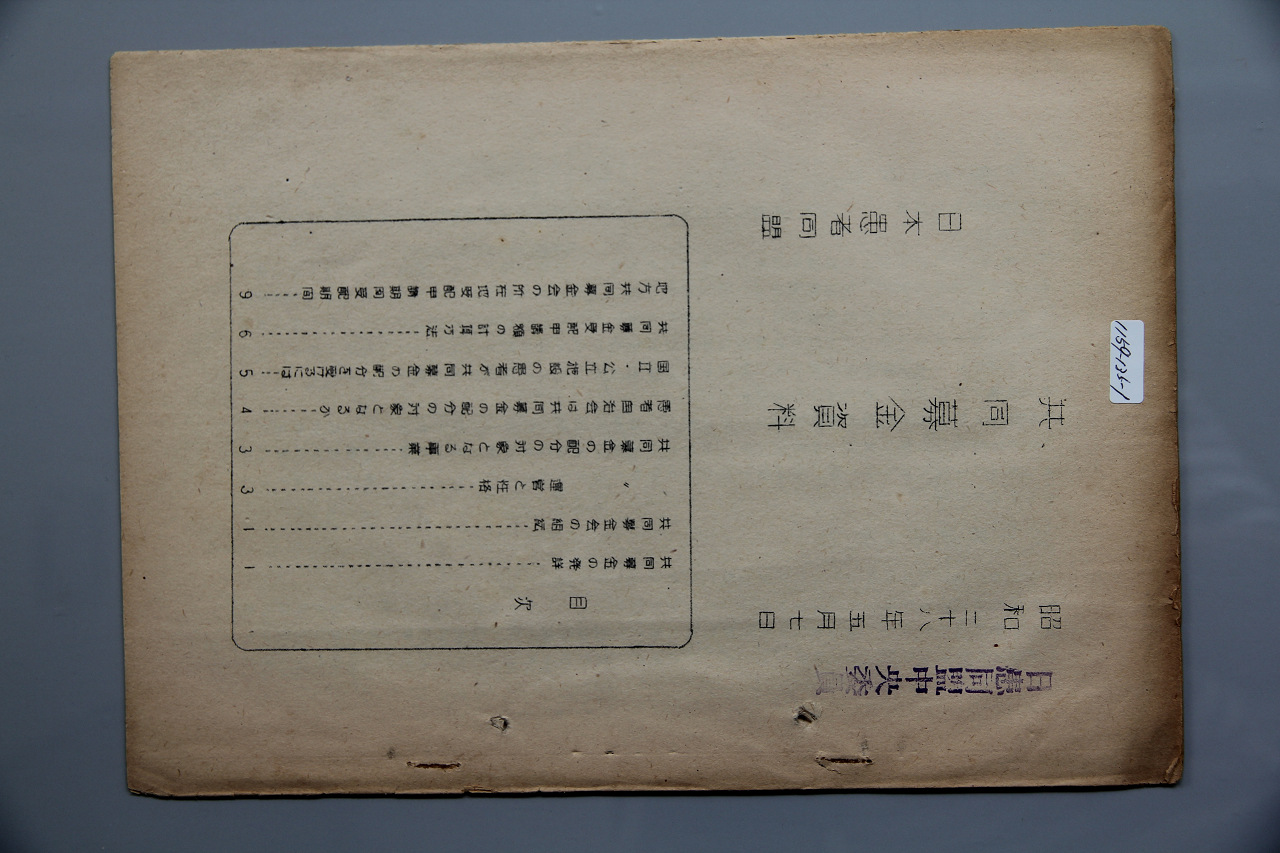 昭和二十八年五月七日
共同募金資料
日本患者同盟
日患同盟中央委員
目次
共同募金の発詳 1
共同募金会の組織 1
〃 運営と性格 3
共同募金の配分の対象となる事業 3
患者自治会は共同募金の配分の対象となるか 4
国立・公立施設の患者が共同募金の配分を受けるには 5
共同募金受配申請額の計算方法 6
地方共同募金会の所在地受配申請期間受配期間 9
1159-135-1